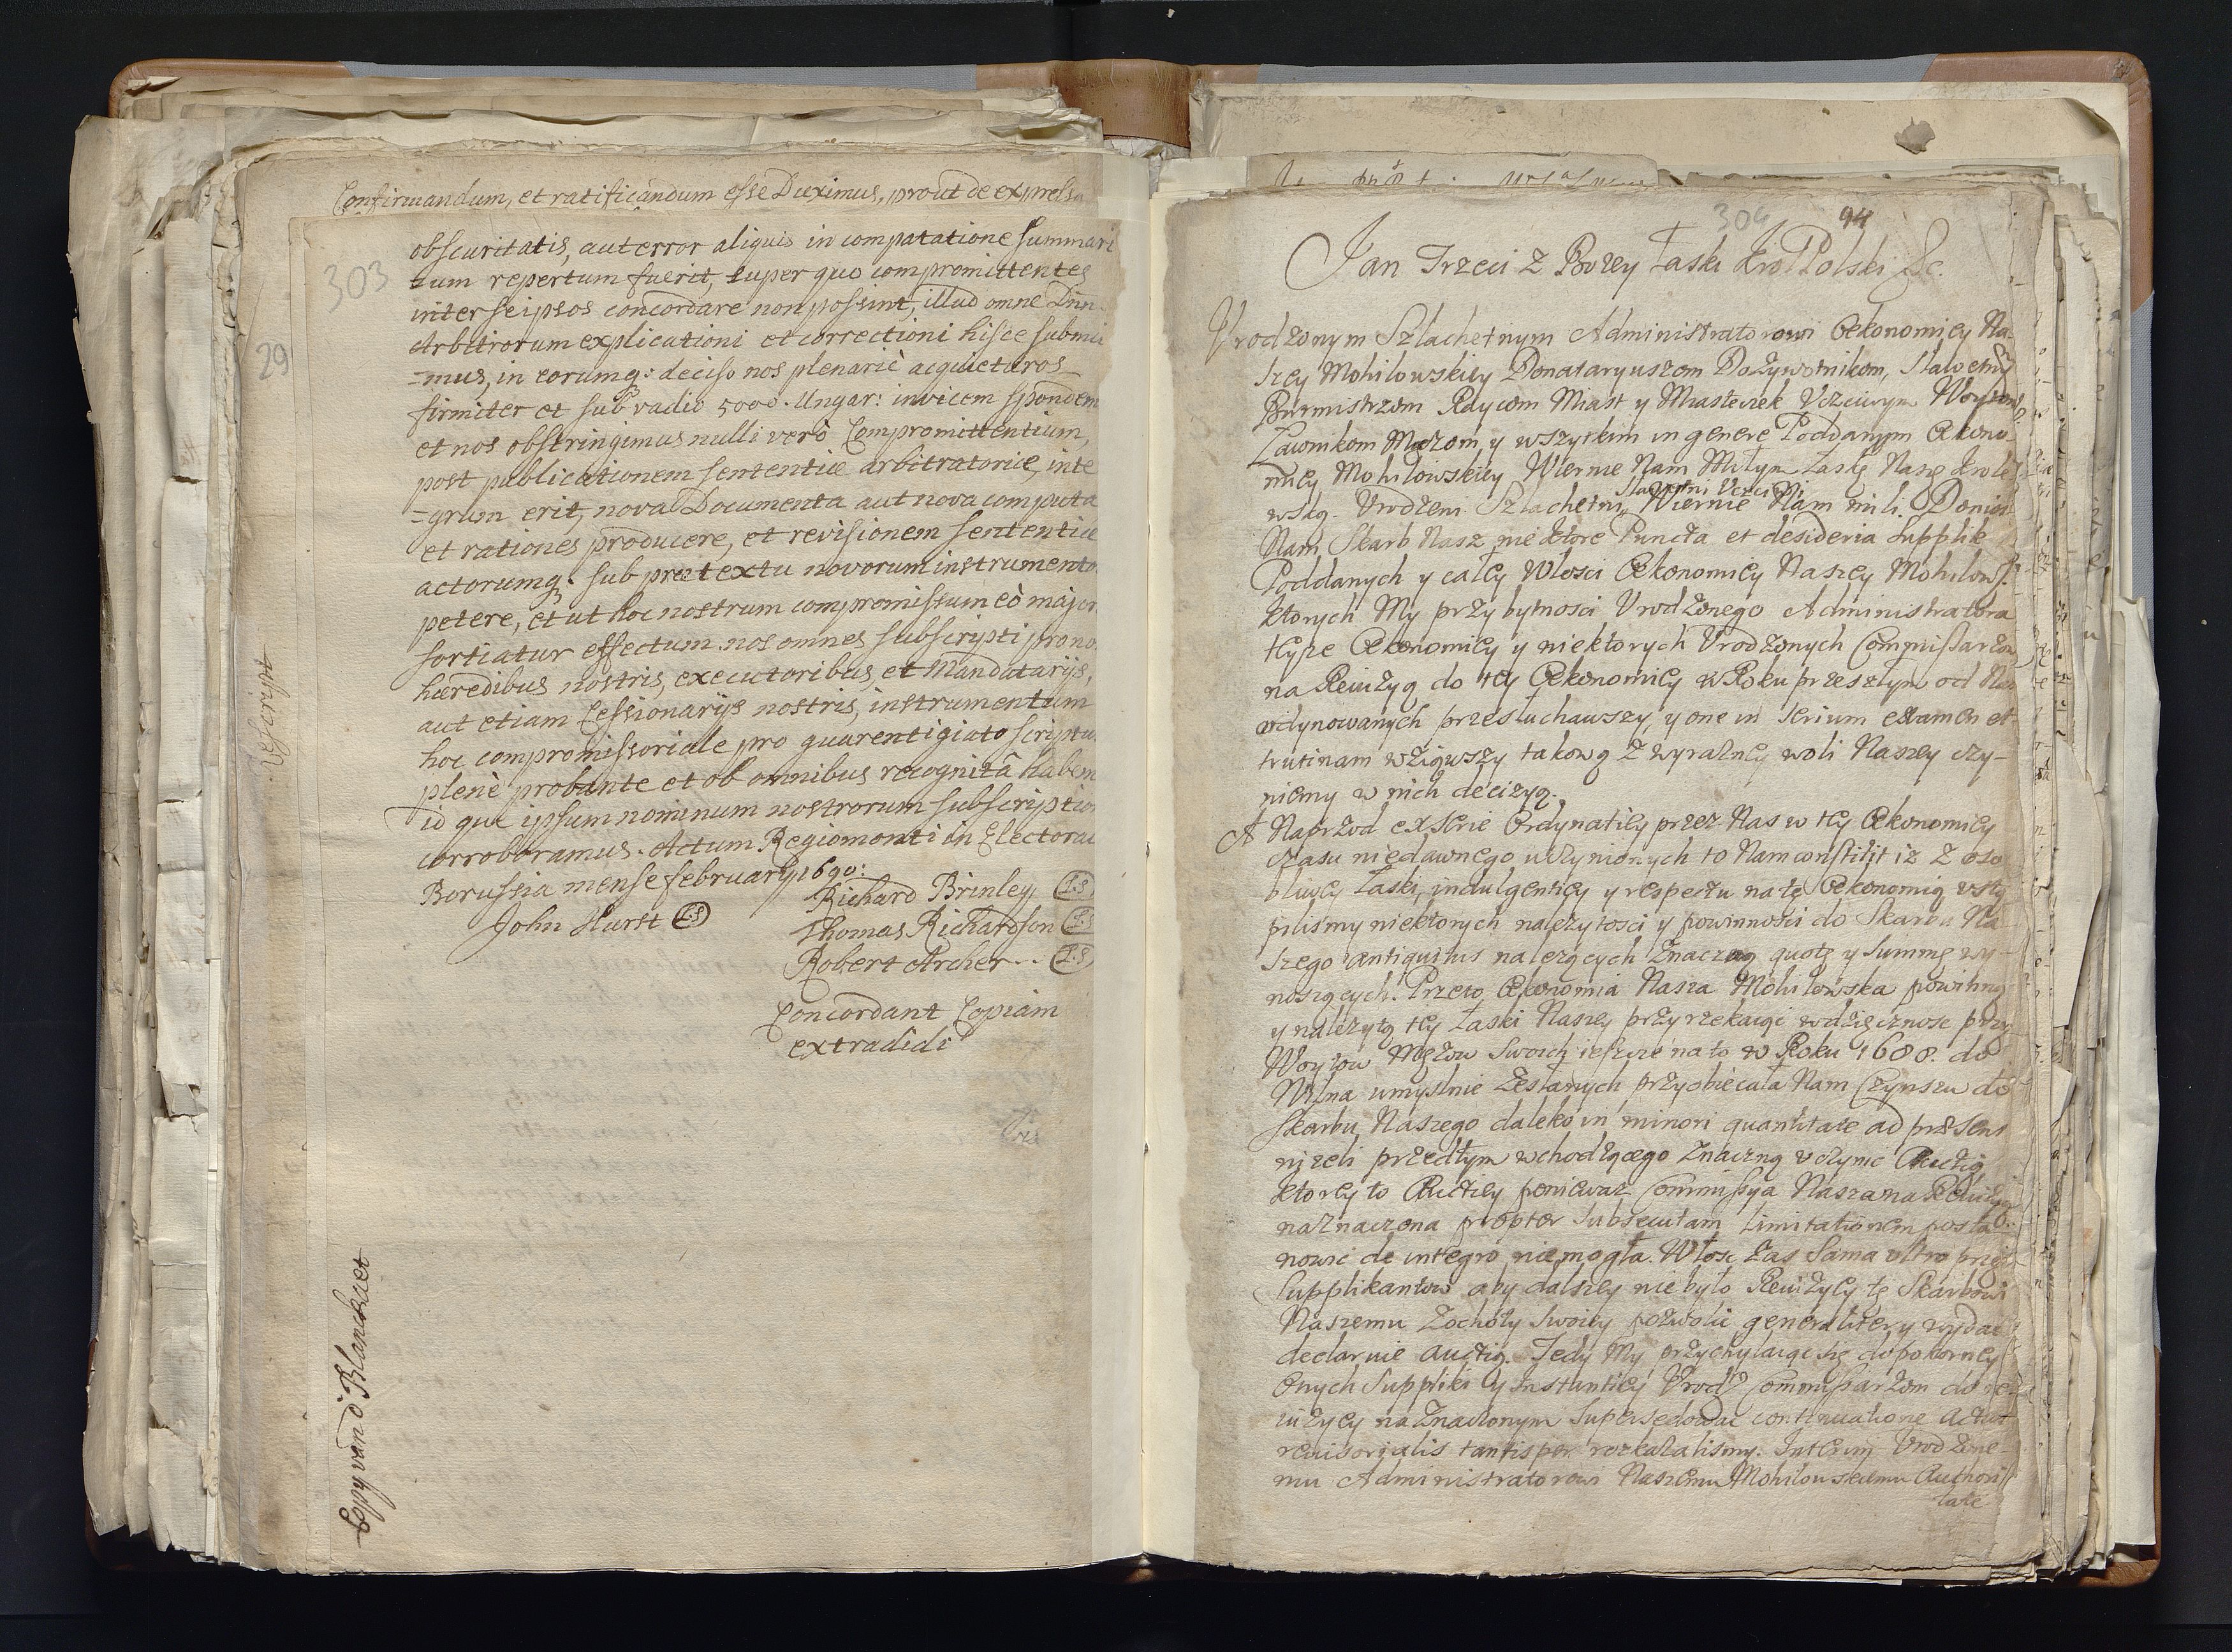 Confirmandum, et ratificandum esse Duximus, prout de expressa
303
29
obscuritatis, aut error aliquis in computatione summari
tum repertum fuerit, super quo compromittentes
inter seipsos concordare non possint, illud omne Dnn.
Arbitrorum explicationi et correctioni hisce submi
=mus, in eorumq: deciso nos plenariè acquieturos
firmiter et sub vadio 5000. Ungar: invicem spondem
et nos obstringimus nulli verò Compromittentium,
post publicationem sententiæ arbitratoriæ, inte
=grum erit, nova Documenta aut nova computa
et rationes producere, et revisionem sententiæ
actorumq; sub prætextu novorum instrumento
petere, et ut hoc nostrum compromissum eò major
sortiatur effectum. nos omnes subscripti pro no
hæredibus nostris, executoribus, et Mandatarijs,
aut etiam Cessionarijs nostris, instrumentum
hoc compromissoriale pro guarentigiato scriptu
plenè probante et ob omnibus recognitâ habem
id que ipsum nominum nostrorum subscriptio
corroboramus. Actum Regiomonti in Electorau
Borussia mense february 1690:
Richard Brinley L.S
John Hurst L.S
Thomas Richardson L.S
Robert Archer.. L.S
Concordant Copiam
extradidi
Rescript
Copy van d Blanckiet
304 94
Jan Trzeci z Bozey Łaski Krol Polski &c.
Vrodzonym Szlachetnym Administratorowi Œkonomiey Na-
szey Mohilowskiey Donataryuszom Dożywotnikom, Sławetny
Burmistrzom Raycom Miast y Miasteczek Vczciwym Woytom
Ławnikom Mężom, y wszytkim in genere Poddanym Œkono-
miey Mohilowskiey Wiernie Nam Miłym Łaskę Naszę Krole-
Sławetni Vczciwi
wską. Vrodzeni Szlachetni, Wiernie Nam mili. Donios
Nam Skarb Nasz niektore Puncta et desideria Supplik
Poddanych y całey Włosci Œkonomiey Naszey Mohilows.
ktorych My przy bytnosci Vrodzonego Administratora
teyże Œkonomiey y niektorych Vrodzonych Commissarzow
na Rewizyą do tey Œkonomiey w Roku przeszłym od Nas
ordynowanych przesłuchawszy, y one in serium examen et
trutinam wziąwszy takową z wyrazney woli Naszey czy-
niemy w nich decizyą.
A Naprzod ex serie Ordynatiey przez Nas w tey Œkonomiey
czasu niedawnego uczynionych to Nam constitit iz z oso
bliwey Łaski, indulgentiey y respectu na tę Œkonomią vstą
piliśmy niektorych należytosci y powinnosci do Skarbu Na-
szego antiquitus nalezących znaczną quotę y Summę wy-
noszących. Przeto Œkonomia Nasza Mohilowska powinną
y należytą tey Łaski Naszey przyrzekaiąc wdzięcznosc przez
Woytow Mężow swoich ieszcze na to w Roku 1688. do
Wilna umyslnie zesłanych przyobiecała Nam Czynszu do
Skarbu Naszego daleko in minori quantitate ad præsens
niżeli przedtym wchodzącego znaczną vczynic Auctią
ktorey to Auctiey ponieważ Commissya Nasza na Rewizyą
naznaczona propter subsecutam limitationem posta-
nowic de integro nie mogła. Włosc zas sama vltro przez
Supplikantow aby dalszey nie było Rewizyey tę Skarbowi
Naszemu z ochoty swoiey pozwolic generaliter y wydac
declaruie auctią. Tedy My przychylaiąc się do pokorney
Onych Suppliki y Instantiey Vrodz. Commissarzom do re-
wizyey naznaczonym supersedowac continuatione actus
revisorialis tantisper rozkazalismy. Interim Vrodzone-
mu Administratorowi Naszemu Mohilowskiemu Authori
tate